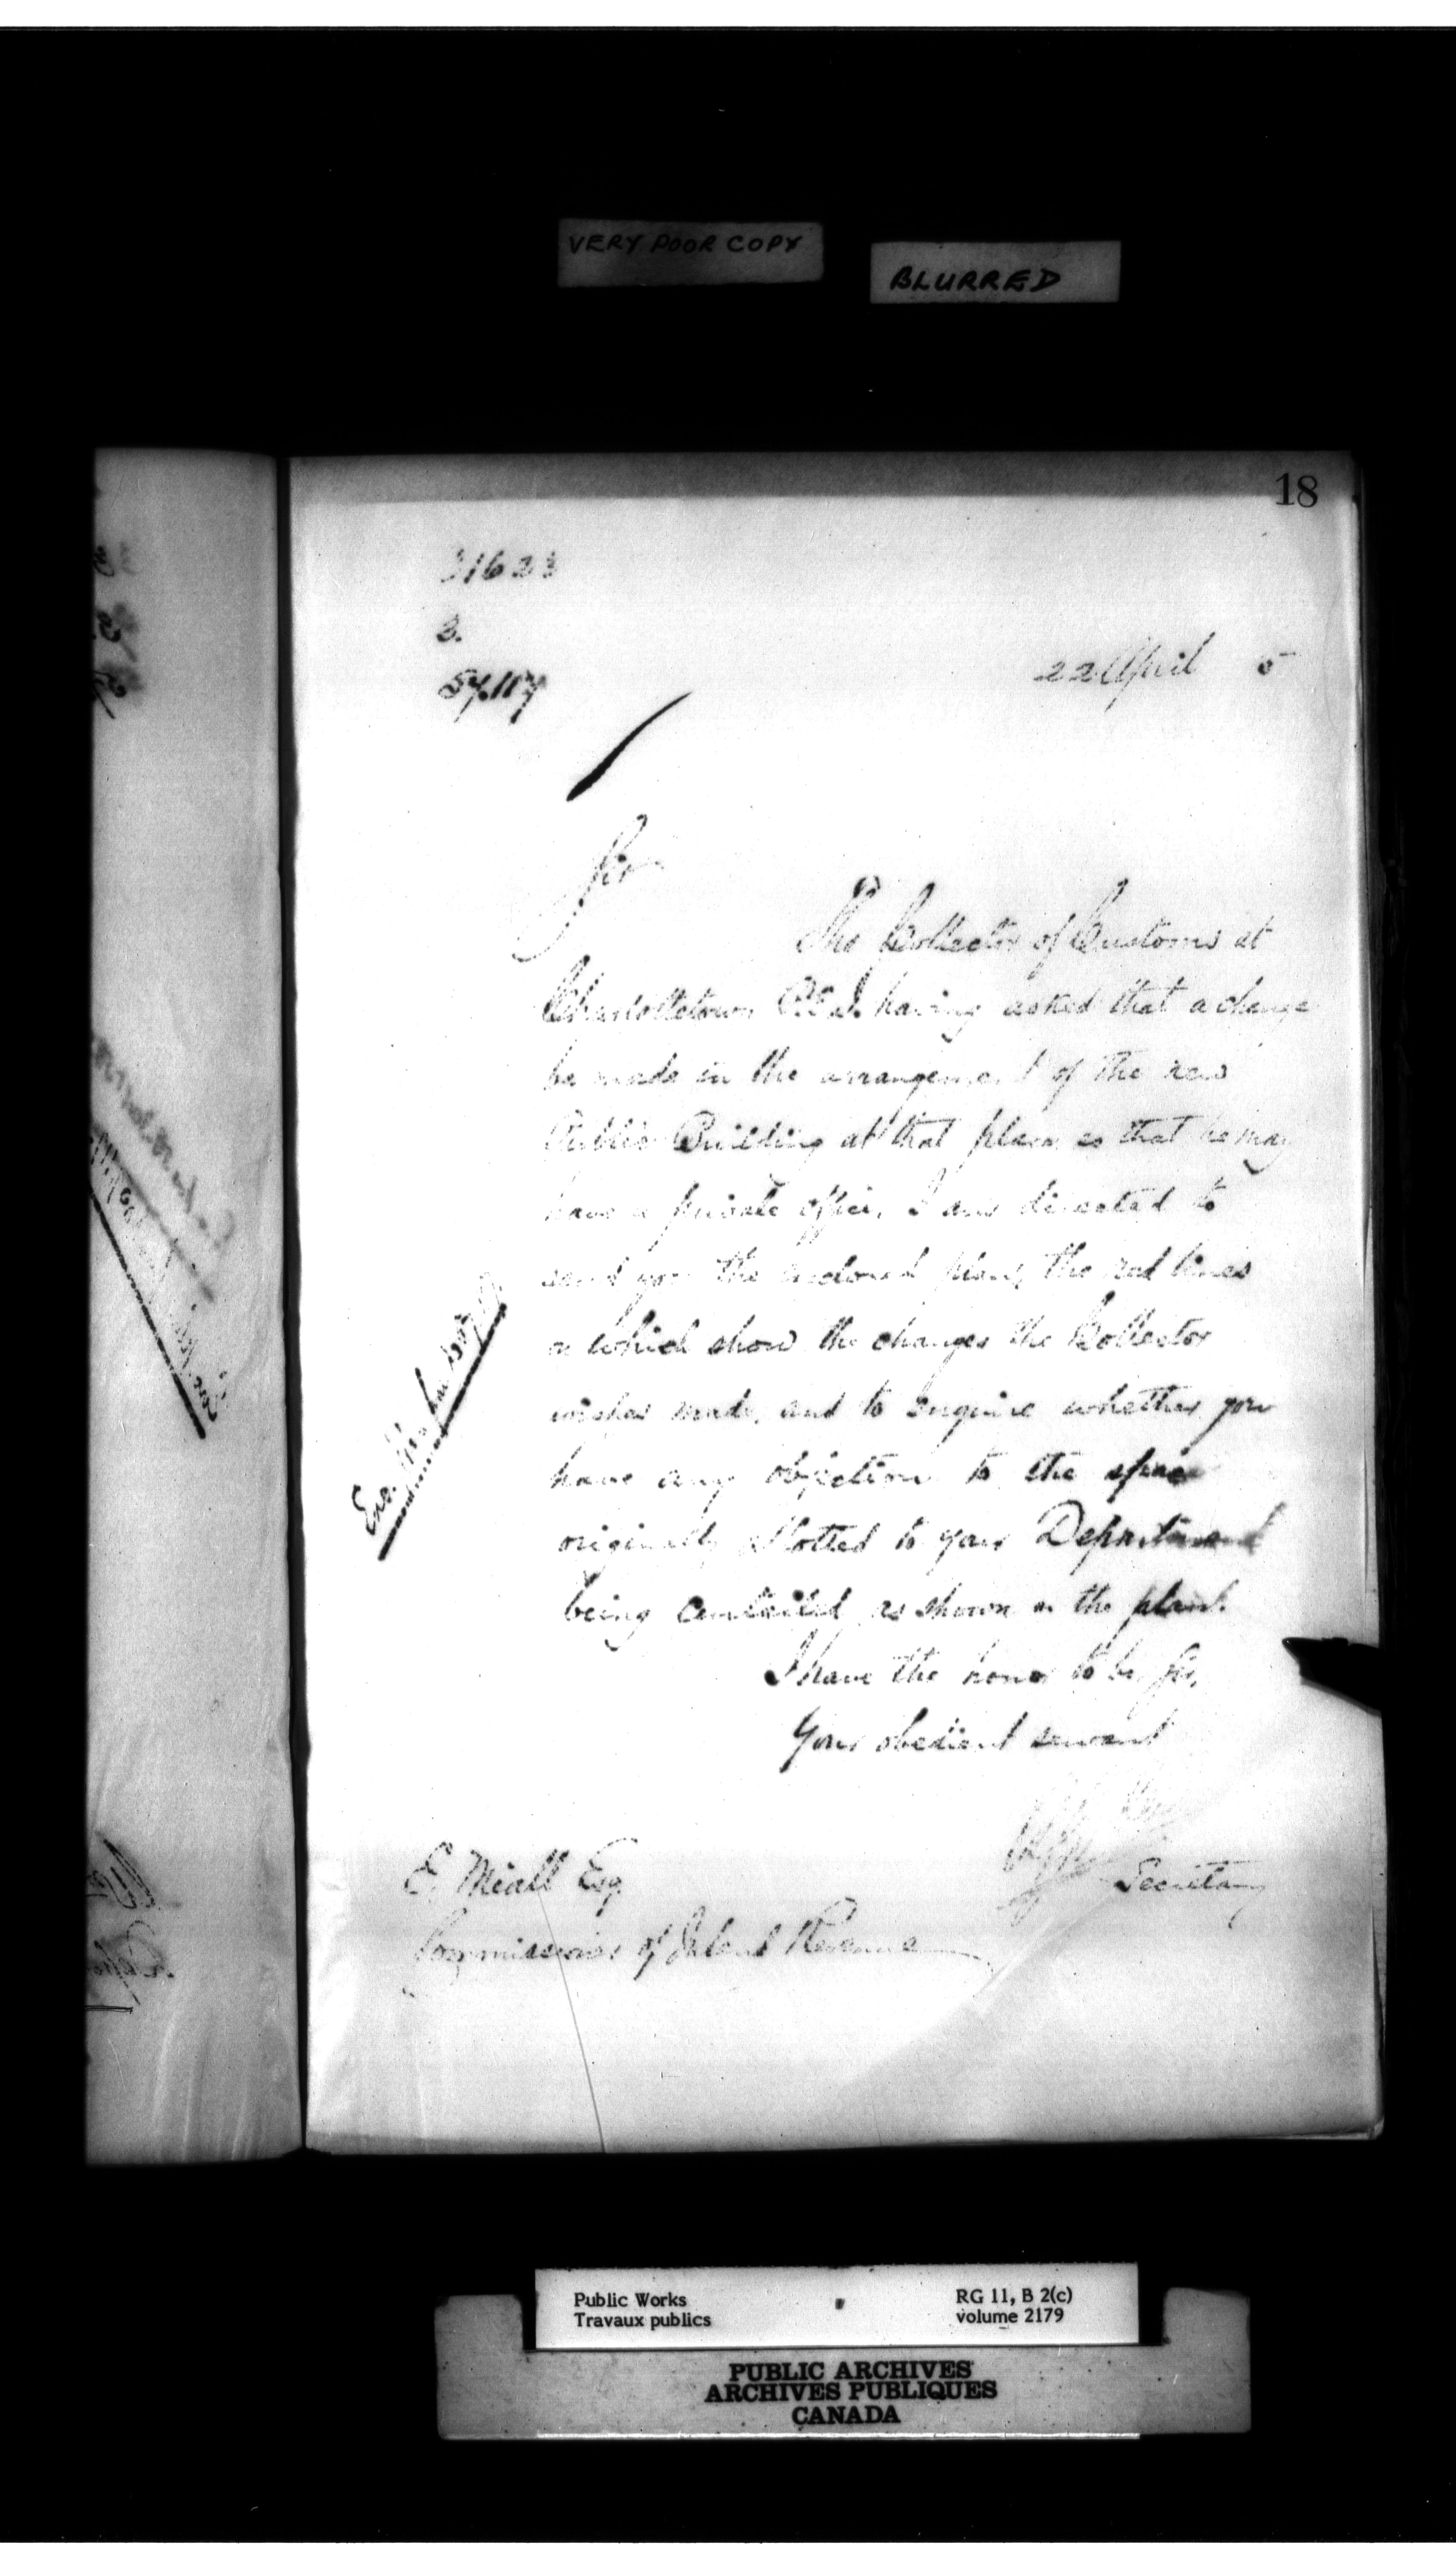 VERY POOR COPY
BLURRED
18
31623
3.
57.117
22 April 5
Sir
The Collector of Customs at
Charlottetown P.E.I. having asked that a change
be made in the arrangement of the new
Public Building at that place so that he may
have a private office, I am directed to
send you the enclosed plan, the red lines
on which show the changes the Collector
wishes made, and to enquire whether you
have any objection to the space
originally allotted to your Department
being curtailed as shown on the plan.
I have the honor to be, Sir,
Your obedient servant
Secretary
E. Miall Esq.
Commissioner of Inland Revenue
Public Works
Travaux publics
RG 11, B 2(c)
volume 2179
PUBLIC ARCHIVES
ARCHIVES PUBLIQUES
CANADA